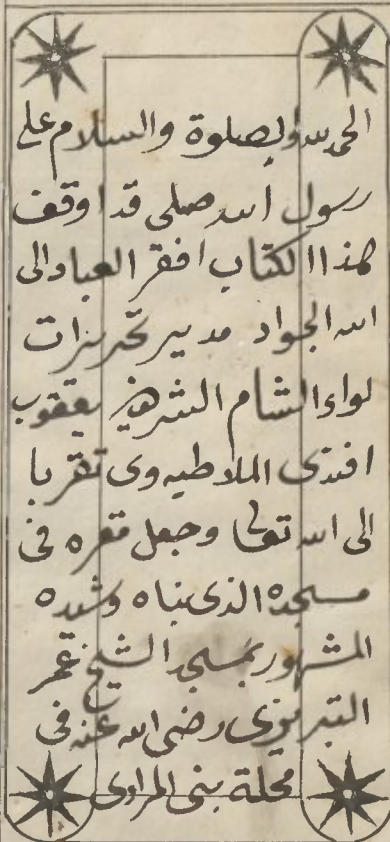 الحمد لله والصلوة والسلام على
رسول الله صلى قد اوقف
هذا الكتاب افقر العباد الى
الله الجواد مدير تحريرات
لواء الشام الشريف يعقوب
افندى الملاطيه وى تقربا
الى الله تعالى وجعل مقره فى
مسجده الذى بناه وشيده
المشهور بمسجد الشيخ عمر
التبريزى رضى الله عنه فى
محلة بنى المرادى